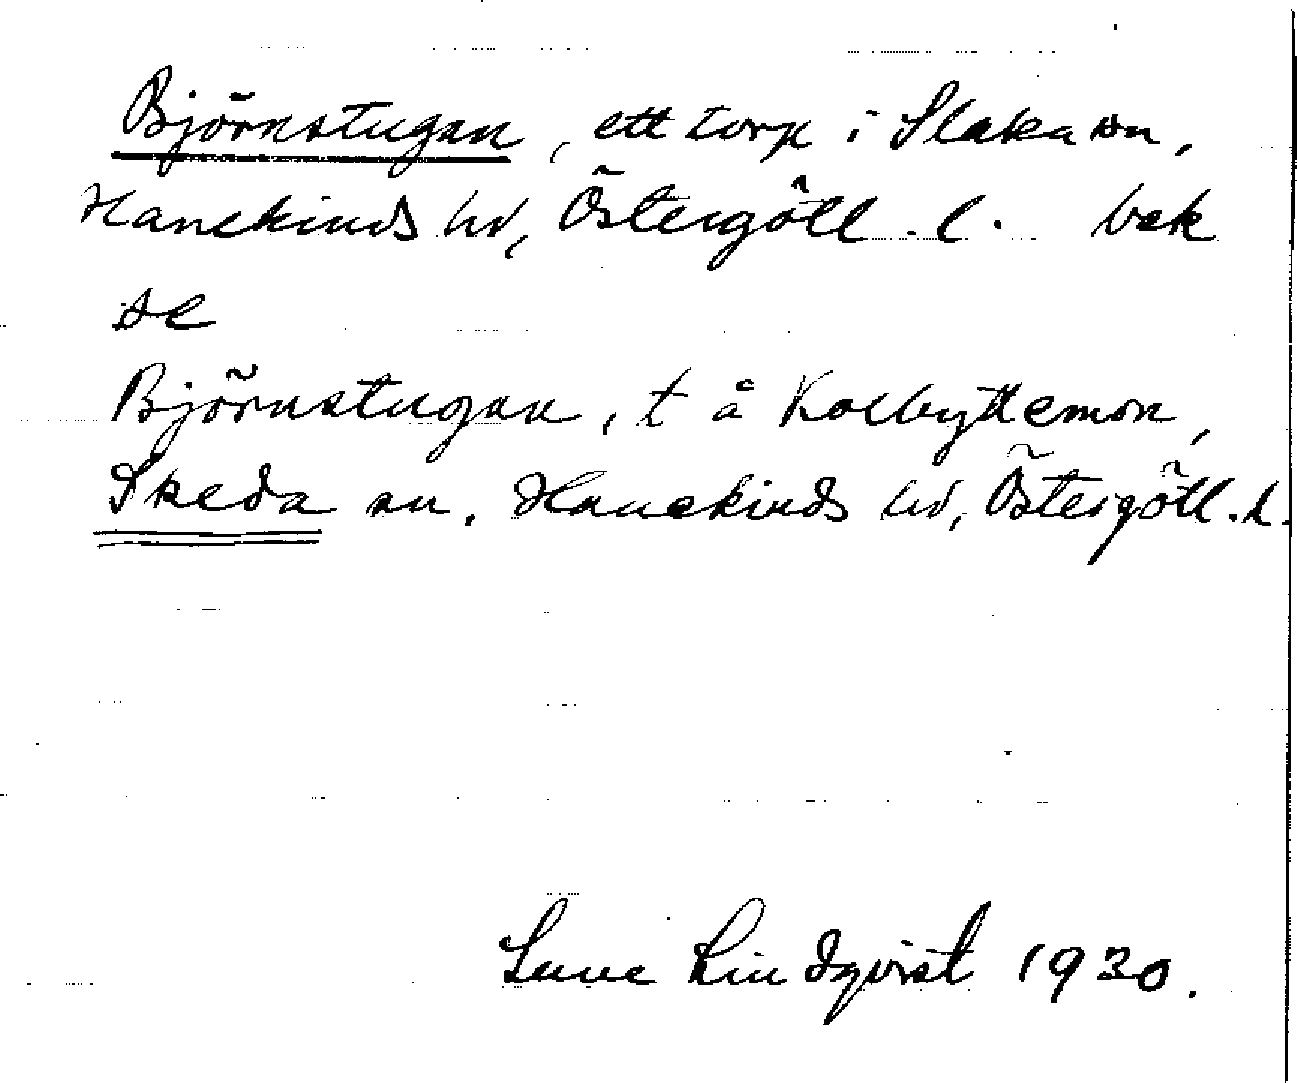 Björnstugan, ett torp i Slaka sn,
Hanekinds hd, Östergötl. l. bek
se
Björnstugan, t å Kolbyttemon,
Skeda sn, Hanekinds hd, Östergötl. l.
Sune Lindqvist 1930.